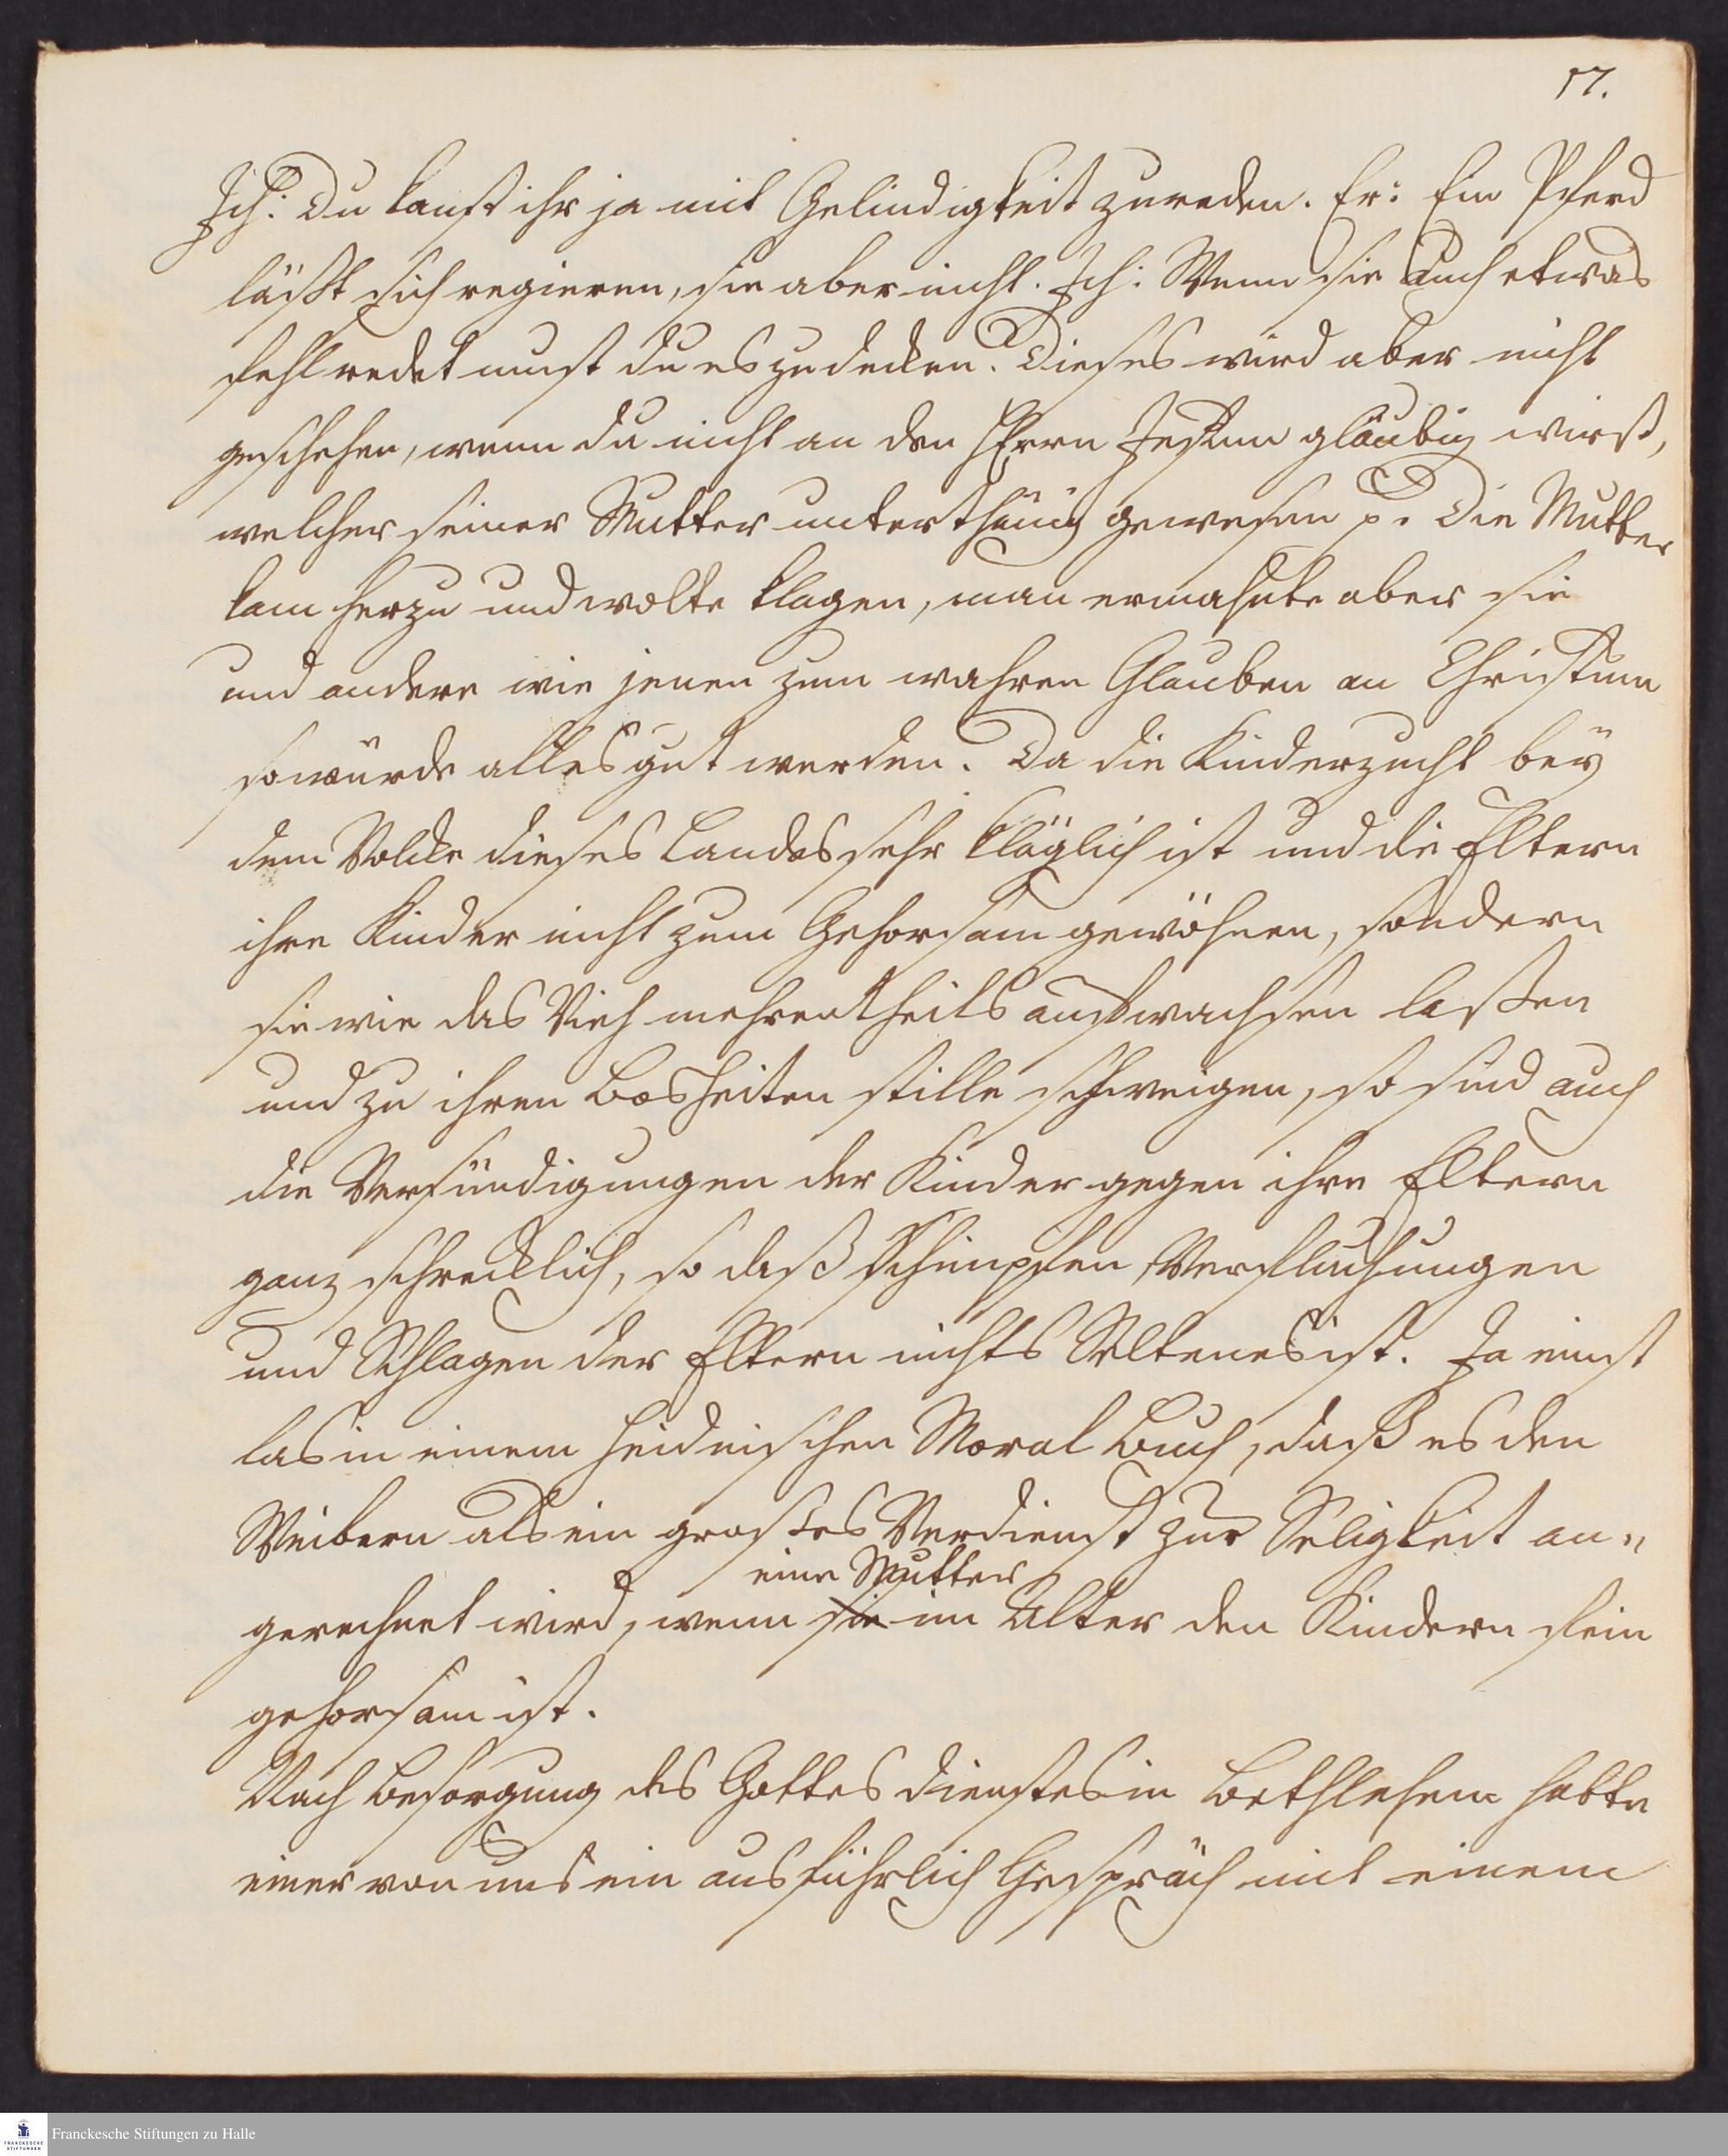 17.
Ich: Du kanst ihr ja mit Gelindigkeit zureden. Er: Ein Pferd
läßt sich regieren, sie aber nicht. Ich: Wenn sie auch etwas
fehl redet must du es zudecken. Dieses wird aber nicht
geschehen, wenn du nicht an den HErrn Jesum gläubig wirst,
welcher seiner Mutter unterthänig gewesen p. Die Mutter
kam herzu und wolte klagen, man ermahnte aber sie
und andere wie jenen zum wahren Glauben an Christum
so würde alles gut werden. Da die Kinderzucht bey
dem Volcke dieses Landes sehr kläglich ist und die Eltern
ihre Kinder nicht zum Gehorsam gewöhnen, sondern
sie wie das Vieh mehrentheils aufwachsen laßen
und zu ihren Bosheiten stille schweigen, so sind auch
die Versündigungen der Kinder gegen ihre Eltern
ganz schrecklich, so daß Schimpfen, Verfluchungen
und Schlagen der Eltern nichts Seltenes ist. Ja einst
las in einem heidnischen Moral Buch, daß es den
Weibern als ein großes Verdienst zur Seligkeit an„
eine Mutter
gerechnet wird, wenn sie im Alter den Kindern fein
gehorsam ist.
Nach Besorgung des Gottes dienstes in Bethlehem hatte
einer von uns ein ausführlich Gespräch mit einem
Franckesche Stiftungen zu Halle